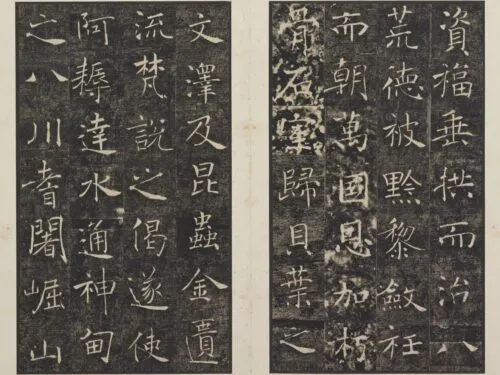 資福垂拱而治八
荒德被黔黎斂衽
而朝萬國恩加朽
骨石室歸貝葉之
文澤及昆蟲金匱
流梵說之偈遂使
阿耨達水通神甸
之八川耆闍崛山